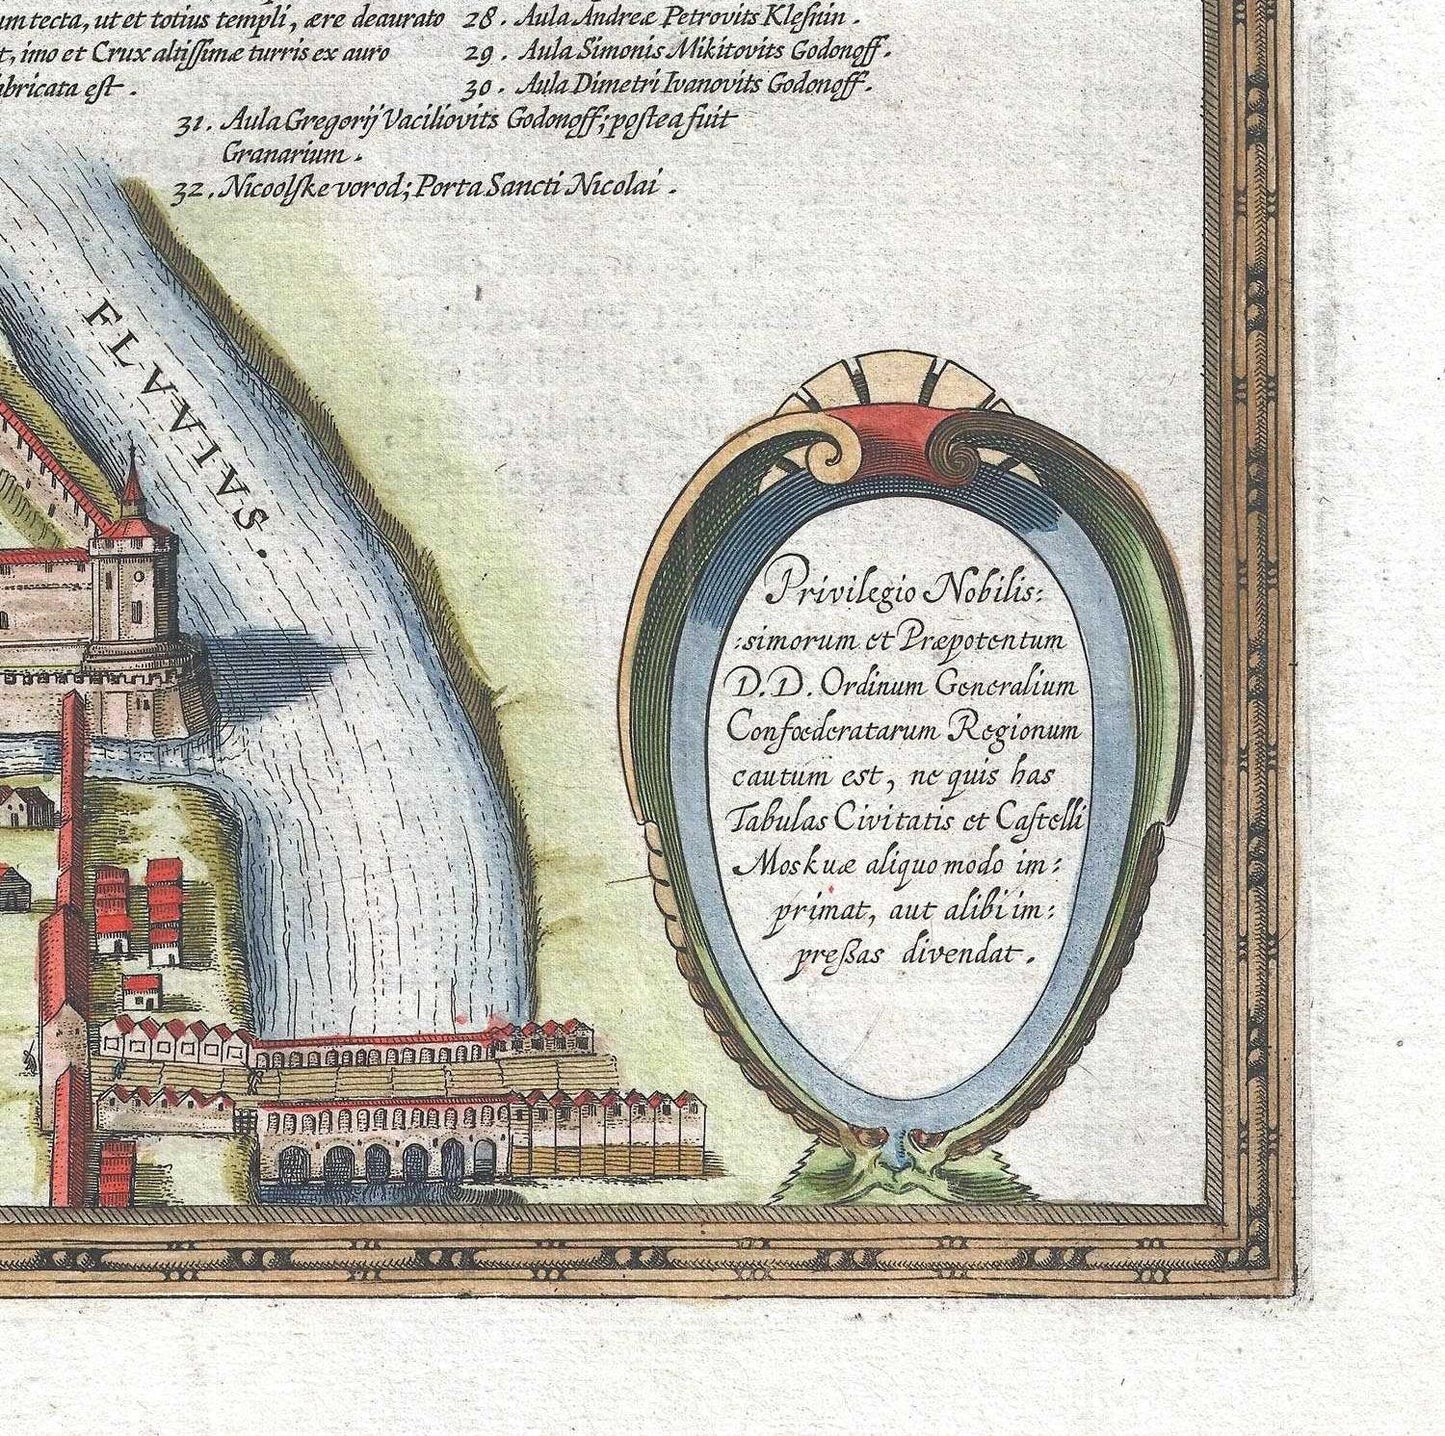 tecta, ut et totius templi, ære deaurato
imo et Crux altiſſimæ turris ex auro
eſt.
28. Aula Andreæ Petrovits Kleſnin.
29. Aula Simonis Mikitovits Godonoff.
30. Aula Dimetri Ivanovits Godonoff.
31. Aula Gregorij Vaciliovits Godonoff; poſtea fuit
Granarium.
32. Nicoolſke vorod; Porta Sancti Nicolai.
FLVVIVS.
Privilegio Nobilis:
:simorum et Præpotentum
D.D. Ordinum Generalium
Confœderatarum Regionum
cautum est, ne quis has
Tabulas Civitatis et Caſtelli
Moskuæ aliquo modo im:
primat, aut alibi im:
preßas divendat.